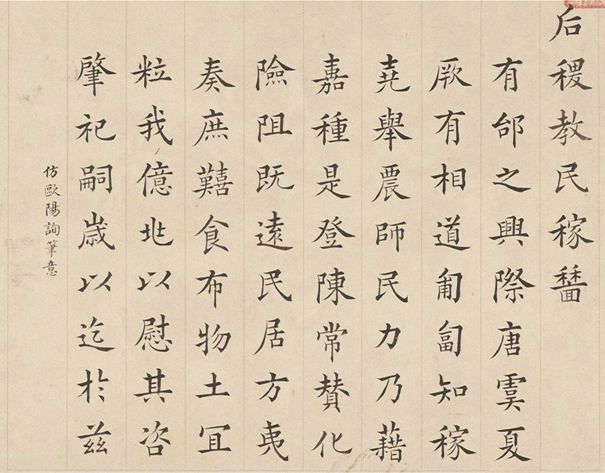 后稷教民稼穡
有邰之興際唐虞夏
厥有相道匍匐知稼
堯舉農師民力乃藉
嘉種是登陳常賛化
險阻既遠民居方夷
奏庶囏食布物土冝
粒我億兆以慰其咨
肇祀嗣歲以迄於茲
仿歐陽詢筆意